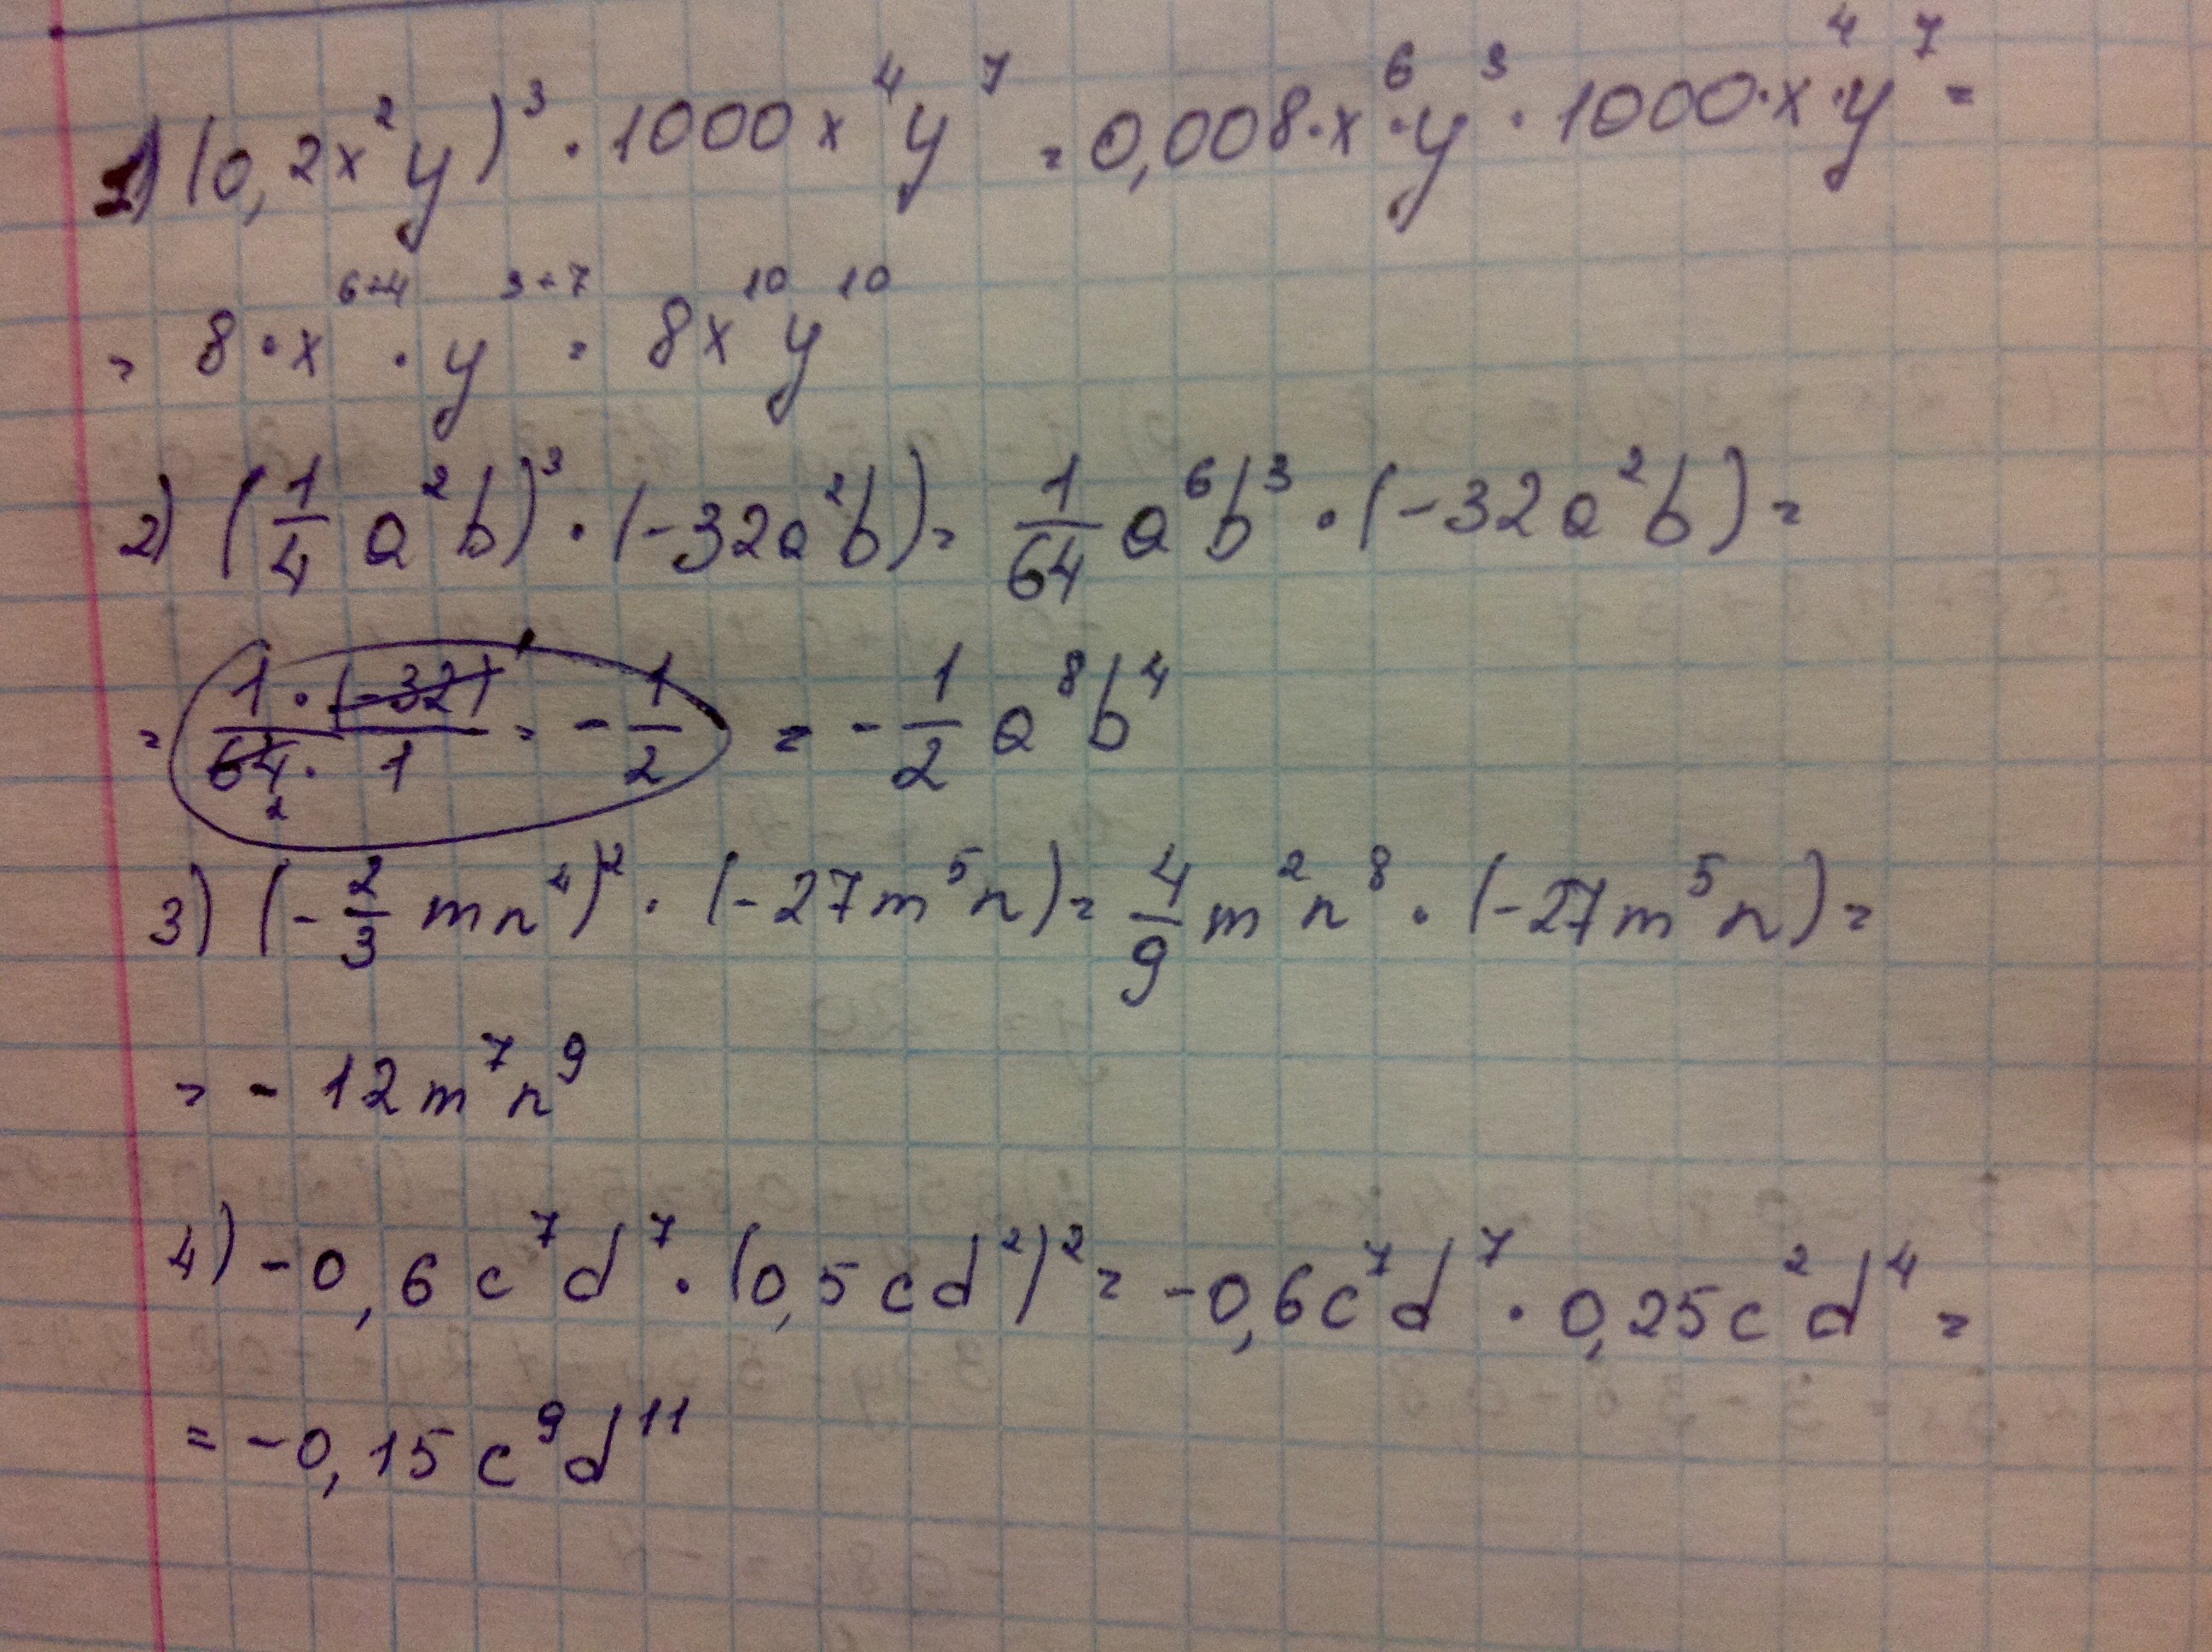 1) (0,2x²y)³ · 1000x⁴y⁷ = 0,008·x⁶·y³ · 1000·x⁴·y⁷ =
= 8·x⁶⁺⁴ · y³⁺⁷ = 8x¹⁰y¹⁰
2) (1/4 a²b)³ · (-32a²b) = 1/64 a⁶b³ · (-32a²b) =
= (1·(-32))/(64·1) = -1/2 = -1/2 a⁸b⁴
3) (-2/3 mn⁴)² · (-27m⁵n) = 4/9 m²n⁸ · (-27m⁵n) =
= -12m⁷n⁹
4) -0,6c⁷d⁷ · (0,5cd²)² = -0,6c⁷d⁷ · 0,25c²d⁴ =
= -0,15c⁹d¹¹